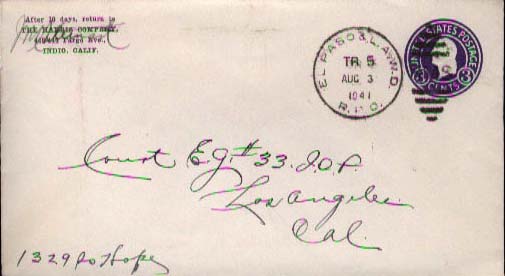 After 10 days, return to
THE HARRIS COMPANY,
Fargo Ave.,
INDIO, CALIF.
EL PASO & L. A. W.D.
TR 5
AUG 3
1941
R.P.O.
UNITED STATES POSTAGE
3 CENTS 3
Court E.G. #33. I.O.F.
Los Angeles
Cal.
1329 So Hope